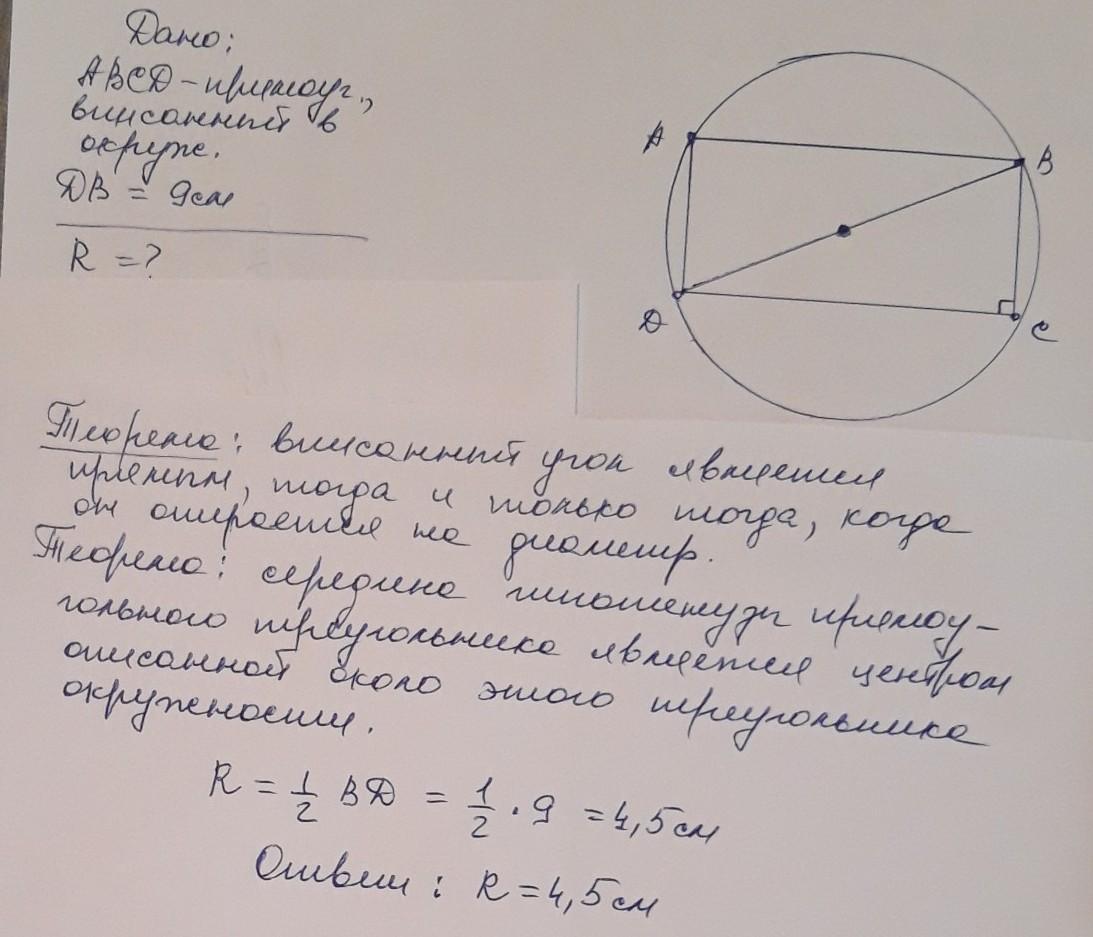 Дано:
ABCD - прямоуг.,
вписанный в
окруж.
DB = 9см
R = ?
A
B
D
C
Теорема: вписанный угол является
прямым, тогда и только тогда, когда
он опирается на диаметр.
Теорема: середина гипотенузы прямоу-
гольного треугольника является центром
описанной около этого треугольника
окружности.
R = 1/2 BD = 1/2 · 9 = 4,5 см
Ответ: R = 4,5 см